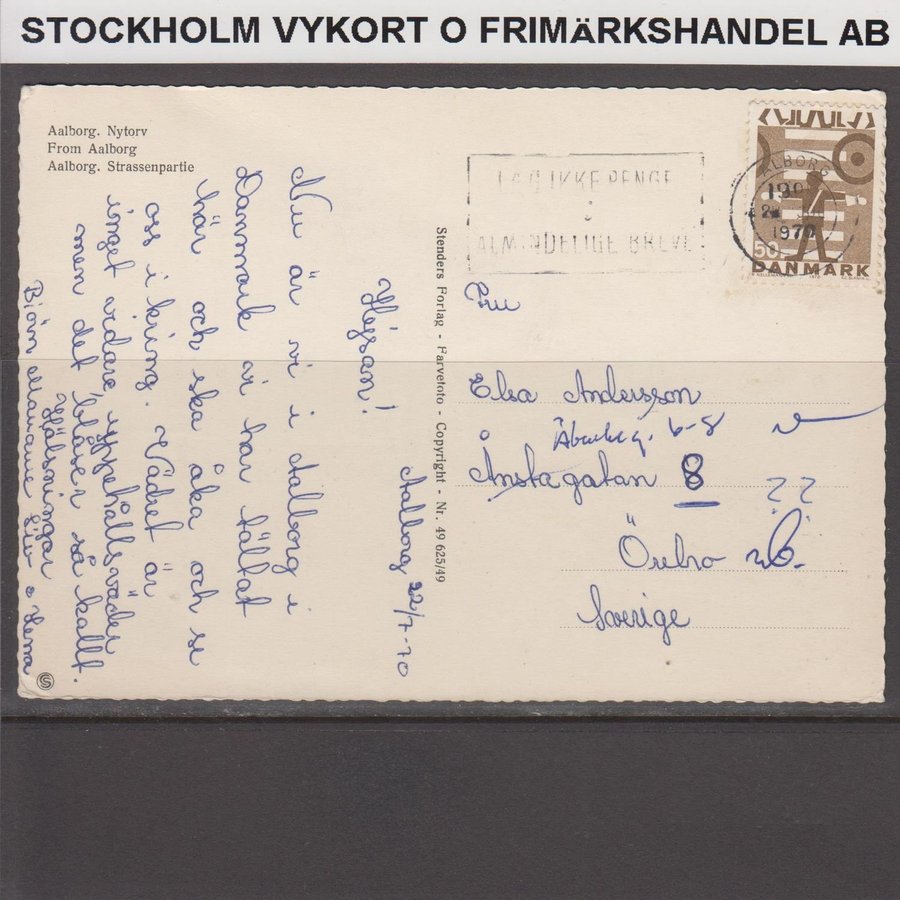 STOCKHOLM VYKORT O FRIMÄRKSHANDEL AB
Aalborg. Nytorv
From Aalborg
Aalborg. Strassenpartie
Aalborg 22/7-70
Hejsan!
Nu är vi i Aalborg i
Danmark vi har tältat
här och ska åka och se
oss i kring. Vädret är
inget vidare, uppehållsväder
men det blåser så kallt.
Hälsningar
Björn Marianne Liv o
Stenders Forlag - Farvefoto - Copyright - Nr. 49 625/49
LÆG IKKE PENGE
I
ALMINDELIGE BREVE
ÅLBORG
1970
50
DANMARK
1970
Fru
Elsa Andersson
6-8
Ånstagatan 8
??
Örebro
Sverige
S